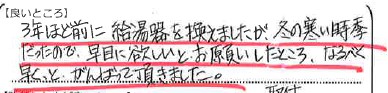 【良いところ】
3年ほど前に給湯器を換えましたが、冬の寒い時季
だったので、早目に欲しいとお願いしたところ、なるべく
早くと、がんばって頂きました。